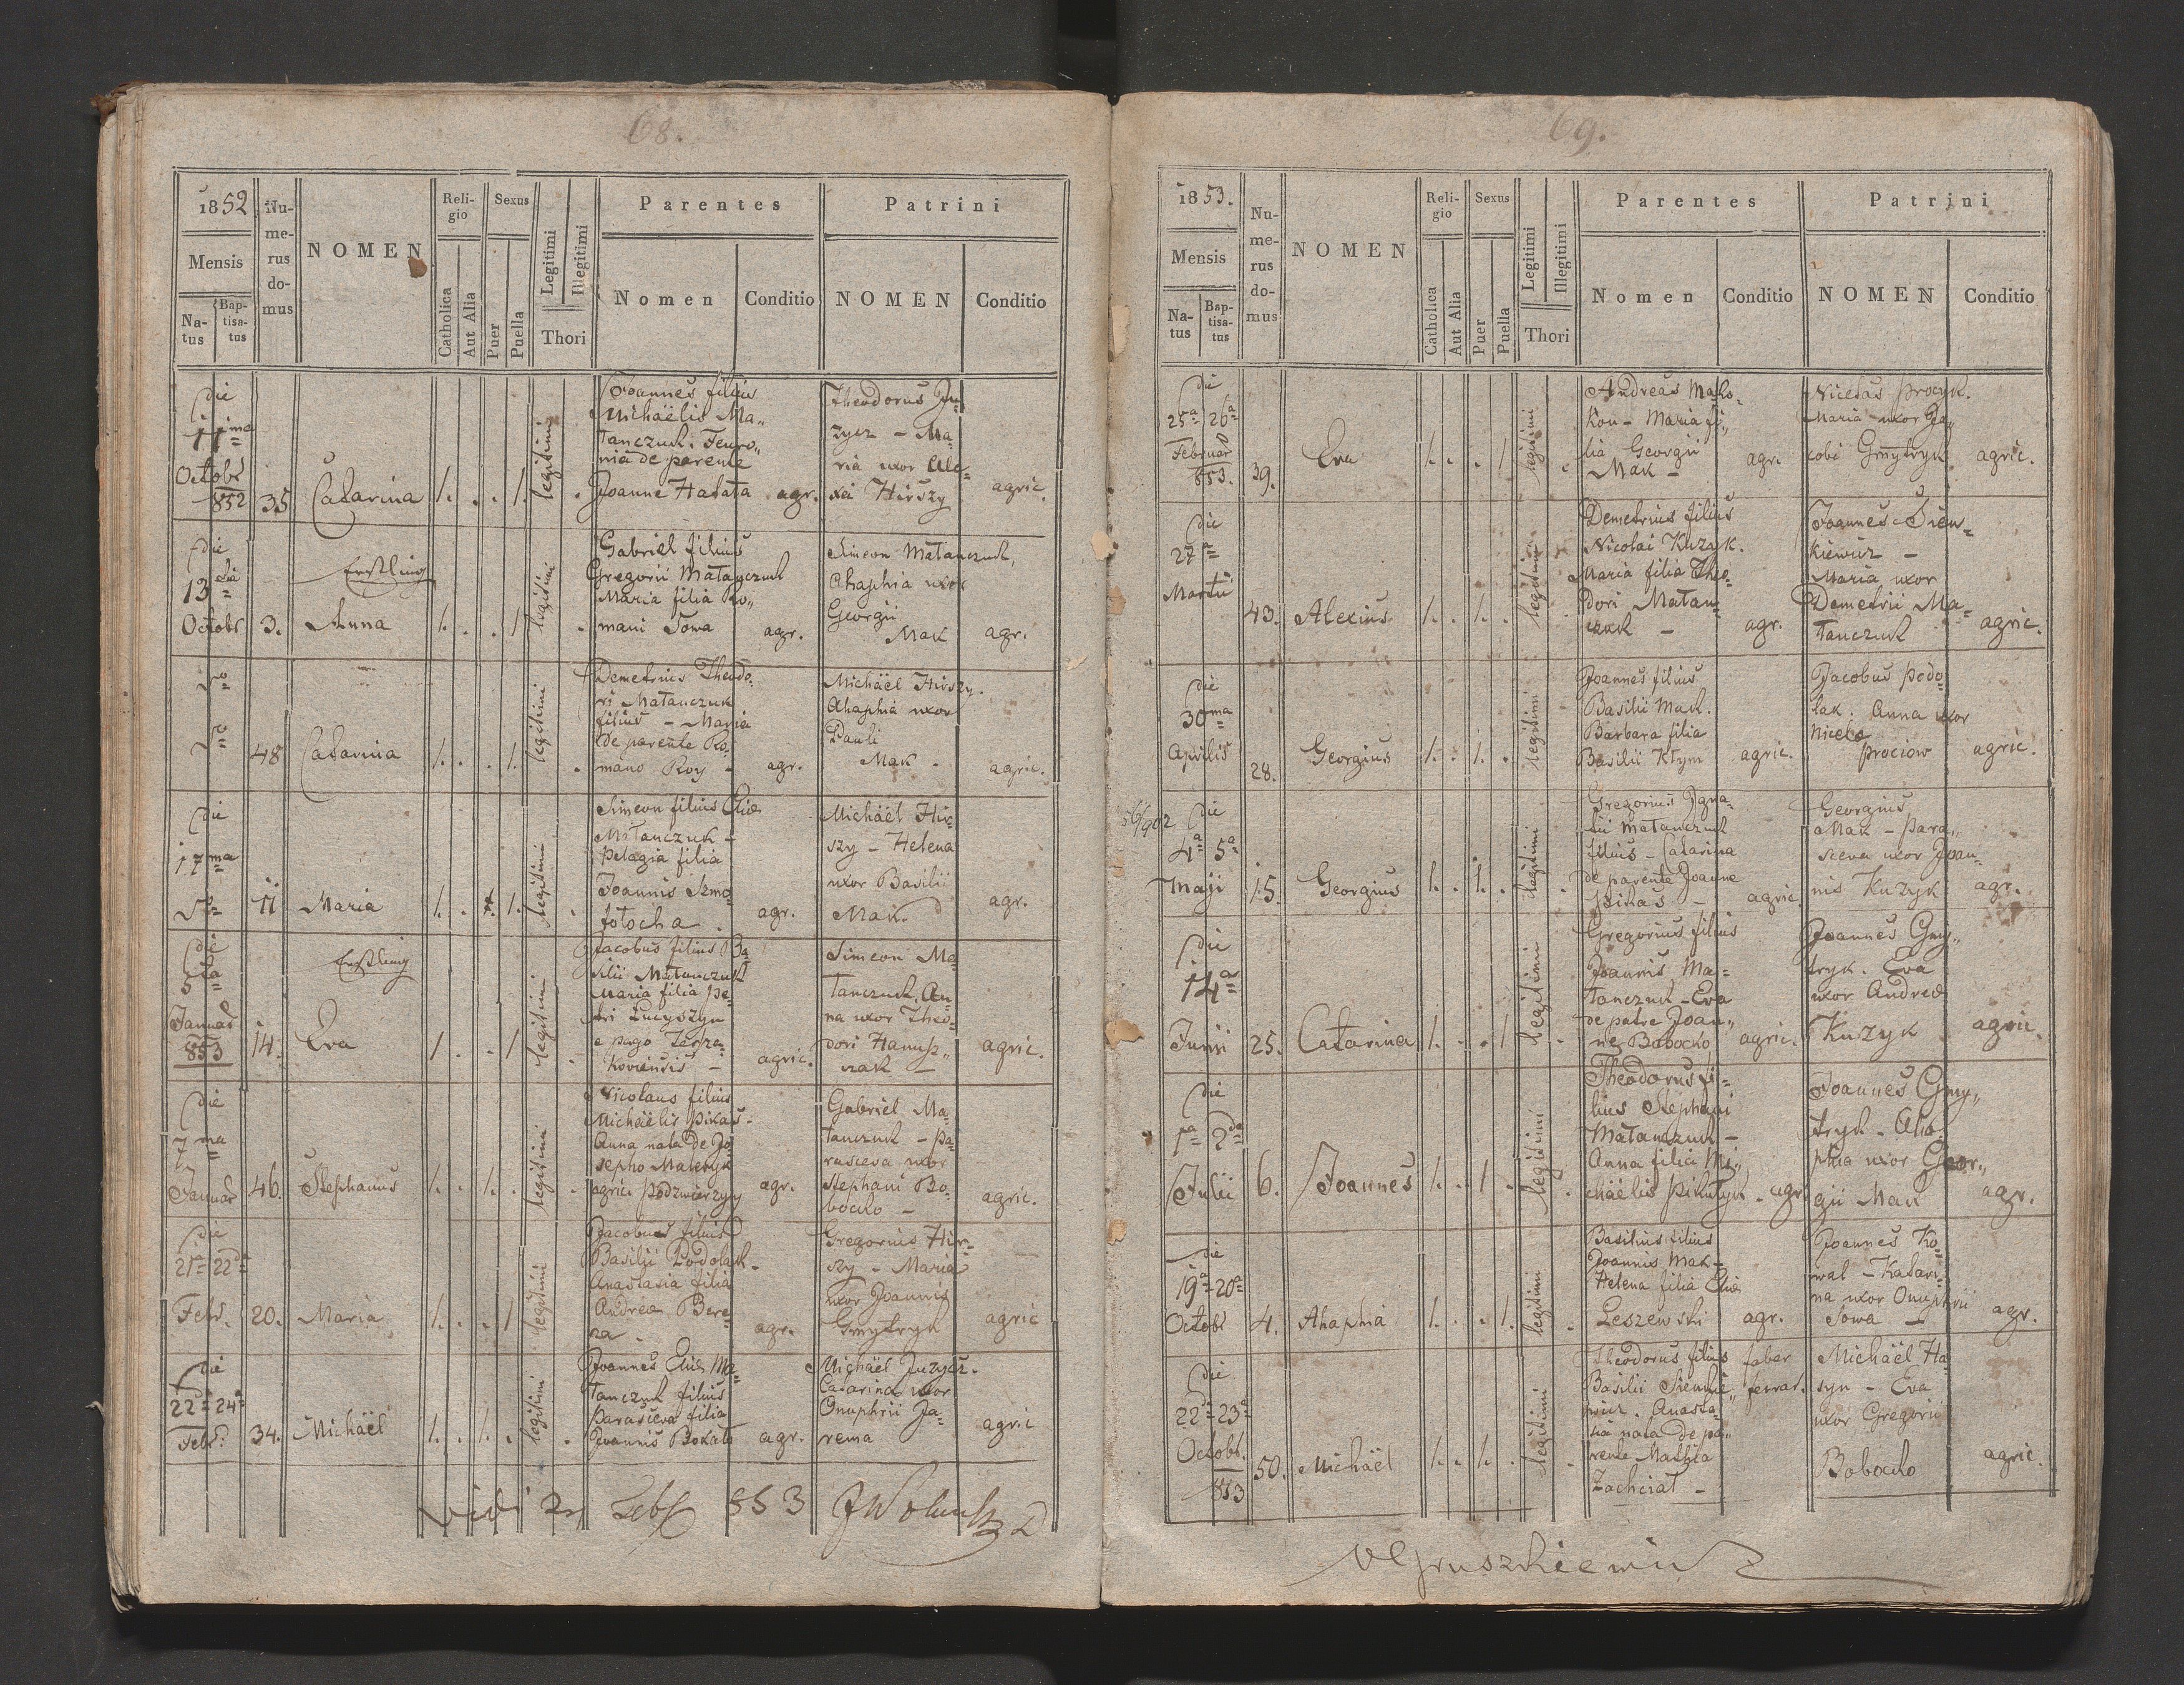 68.
1852
Mensis
Na-
tus
Bap-
tisa-
tus
Nu-
me-
rus
do-
mus
NOMEN
Reli-
gio
Catholica
Aut Alia
Sexus
Puer
Puella
Legitimi
Illegitimi
Thori
Parentes
Nomen
Conditio
Patrini
NOMEN
Conditio
die
11ma
Octobr
852
35
Catarina
1. . . 1.
legitimi
Joannes filius
Michaëlis Ma„
tanczuk.
nia de parente
Joanne Hatała
agr.
Theodorus Ju
zycz - Ma
ria uxor Ale
xei Hirszy
agric.
die
13tia
Octobr
3.
Erstling
Anna
1. . . 1
legitimi
Gabriel filius
Gregorii Matanczuk
Maria filia Ro„
mani Sowa
agr.
Simeon Matanczuk,
Ahaphia uxor
Georgii
Mak
agr.
48
Catarina
1. . . 1.
legitimi
Demetrius Theodo
ri Matanczuk
filius - Maria
de parente Ro
mano Roy -
agr.
Michaël Hirszy.
Ahaphia uxor
Pauli
Mak -
agric.
die
17ma
11
Maria
1. . . 1.
legitimi
Simeon filius Eliæ
Matanczuk -
Pelagia filia
Joannis Szmo
tołocha
agr.
Michaël Hir
szy - Helena
uxor Basilii
Mak.
agr.
die
5ta
Januar
853
14.
Erstling
Eva
1 . . 1
legitimi
Jacobus filius Ba
silii Matanczuk
Maria filia Pe
tri Łucyszyn
e pago
koviensis -
agric.
Simeon Ma
tanczuk. An
na uxor Theo
dori Hanusz„
czak -
agric.
die
7ma
Januar
46.
Stephanus
1. . 1. .
legitimi
Nicolaus filius
Michaëlis Pikas -
Anna nata de Jo
sepho Maleryk
agric. Podzwierzyn
agr.
Gabriel Ma
tanczuk - Pa
rasceva uxor
Stephani Bo
bocko -
agric.
die
21a 22da
Febr.
20.
Maria
1. . . 1
legitimi
Jacobus filius
Basilii Podolak -
Anastasia filia
Andreæ Bere
za -
agr.
Gregorius Hir
szy - Maria
uxor Joannis
Gmytryk
agric
die
22a 24a
Febr.
34.
Michaël
1. . 1. .
legitimi
Joannes Eliæ Ma
tanczuk filius
Parasceva filia
Joannis Bokało
agr.
Michaël Juzycz.
Catarina uxor
Onuphrii Ja
rema
agric
vidi 853
69.
1853.
Mensis
Na-
tus
Bap-
tisa-
tus
Nu-
me-
rus
do-
mus
NOMEN
Reli-
gio
Catholica
Aut Alia
Sexus
Puer
Puella
Legitimi
Illegitimi
Thori
Parentes
Nomen
Conditio
Patrini
NOMEN
Conditio
die
25a 26a
Februar
853.
39.
Eva
1. . . 1
legitimi
Andreas Mako
kon - Maria fi„
lia Georgii
Mak -
agr.
Nicetas Procyk.
Maria uxor Ja
cobi Gmytryk
agric.
die
27a
Martii
43.
Alexius
1. . 1. .
legitimi
Demetrius filius
Nicolai Kuzyk.
Maria filia Theo
dori Matan
czuk -
agr.
Joannes Sien
kiewicz -
Maria uxor
Demetrii Ma
tanczuk
agric.
die
30ma
Aprilis
28.
Georgius
1. . 1. .
legitimi
Joannes filius
Basilii Mak.
Barbara filia
Basilii Kłym
agric.
Jacobus Podo
lak. Anna uxor
Niceta
Prociow
agric.
56/902
die
4a 5a
Maji
15.
Georgius
1. . 1. .
legitimi
Gregorius Igna
tii Matanczuk
filius - Catarina
de parente Joanne
Pikas -
agric.
Georgius
Mak - Para„
sceva uxor Joan
nis Kuzyk
agr.
die
14a
Junii
25.
Catarina
1. . . 1
legitimi
Gregorius filius
Joannis Ma=
tanczuk - Eva
de patre Joan„
ne Bobocko
agric.
Joannes Gmy„
tryk. Eva
uxor Andreæ
Kuzyk
agric.
die
1a 2da
Julii
6.
Joannes
1. . 1 .
legitimi
Theodorus fi=
lius Stephani
Matanczuk -
Anna filia Mi„
chaëlis Pikułyk -
agr
Joannes Gmy„
tryk - Aha
phia uxor Geor„
gii Mak
agr.
die
19a 20a
Octobr
4.
Ahaphia
1. . . 1.
legitimi
Basilius filius
Joannis Mak -
Helena filia Eliæ
Leszewski
agr.
Joannes Ko
wal - Katari
na uxor Onuphrii
Sowa -
agr.
die
22a 23a
Octobr.
853
50.
Michaël
1. . 1. .
legitimi
Theodorus filius
Basilii Sienkie„
wicz. Anasta
sia nata de pa„
rente Mathia
Zachciał -
faber
ferrar.
Michaël Ha
syn - Eva
uxor Gregorii
Bobocko
agric.